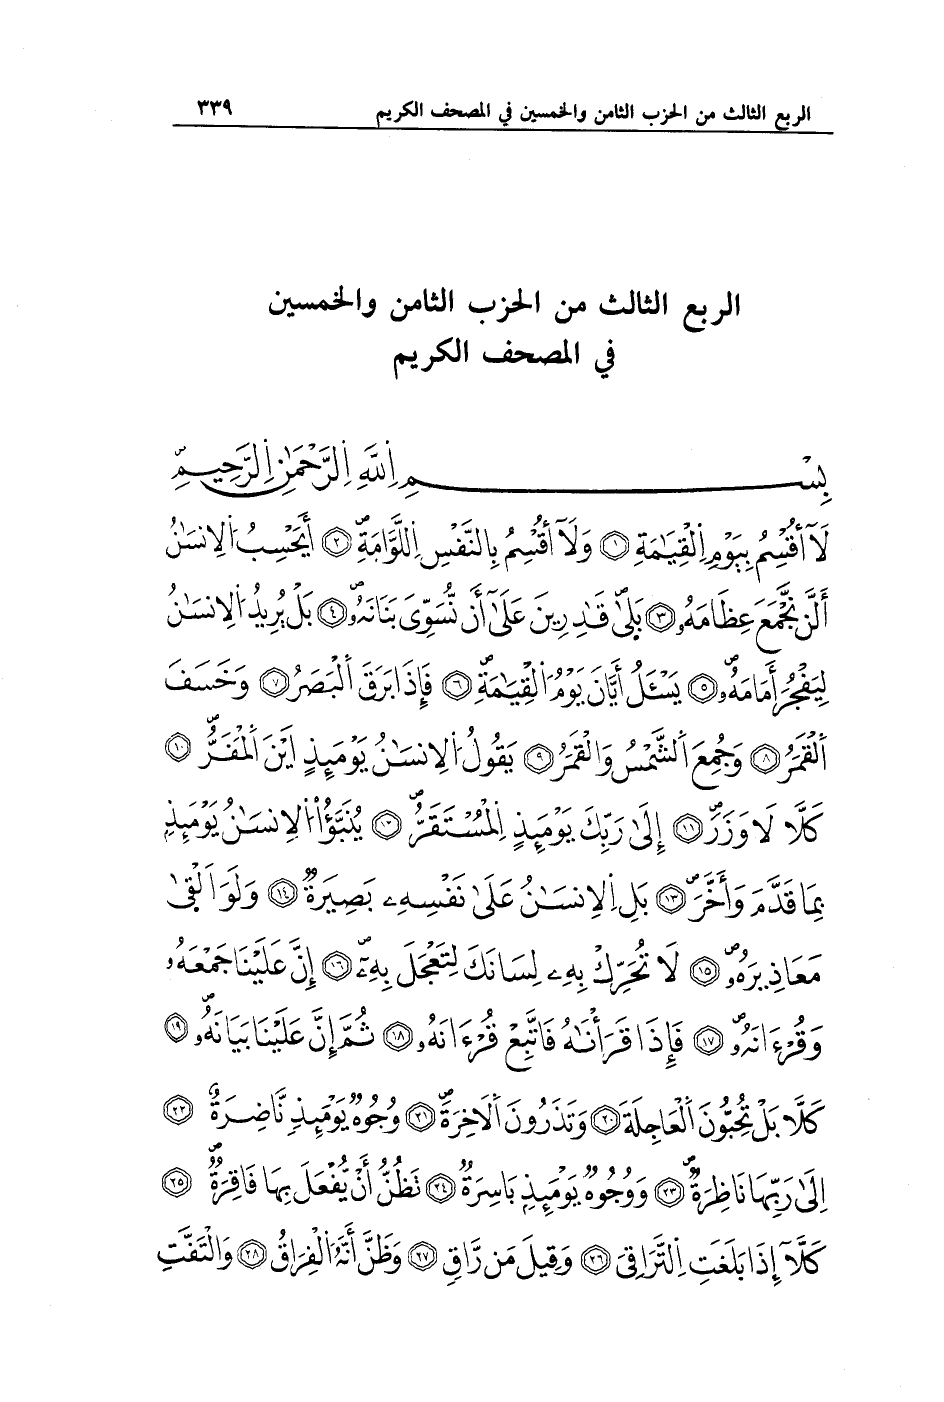 الربع الثالث من الحزب الثامن والخمسين في المصحف الكريم ٣٣٩
الربع الثالث من الحزب الثامن والخمسين
في المصحف الكريم
بِسْمِ اِ۬للَّهِ اِ۬لرَّحْمَٰنِ اِ۬لرَّحِيمِ
لَآ أُقْسِمُ بِيَوْمِ اِ۬لْقِيَٰمَةِ ١ وَلَآ أُقْسِمُ بِالنَّفْسِ اِ۬للَّوَّامَةِۖ ٢ أَيَحْسِبُ اُ۬لِانسَٰنُ
أَلَّن نَّجْمَعَ عِظَامَهُۥ ٣ بَلَىٰۖ قَٰدِرِينَ عَلَىٰٓ أَن نُّسَوِّىَ بَنَانَهُۥۖ ٤ بَلْ يُرِيدُ اُ۬لِانسَٰنُ
لِيَفْجُرَ أَمَامَهُۥۖ ٥ يَسْـَٔلُ أَيَّانَ يَوْمُ اُ۬لْقِيَٰمَةِۖ ٦ فَإِذَا بَرَقَ اَ۬لْبَصَرُ ٧ وَخَسَفَ
اَ۬لْقَمَرُ ٨ وَجُمِعَ اَ۬لشَّمْسُ وَالْقَمَرُ ٩ يَقُولُ اُ۬لِانسَٰنُ يَوْمَئِذٍ اَيْنَ اَ۬لْمَفَرُّۖ ١٠
كَلَّا لَا وَزَرَۖ ١١ إِلَىٰ رَبِّكَ يَوْمَئِذٍ اِ۬لْمُسْتَقَرُّۖ ١٢ يُنَبَّؤُاْ اُ۬لِانسَٰنُ يَوْمَئِذِۢ
بِمَا قَدَّمَ وَأَخَّرَۖ ١٣ بَلِ اِ۬لِانسَٰنُ عَلَىٰ نَفْسِهِۦ بَصِيرَةٞ ١٤ وَلَوَ اَلْقَىٰ
مَعَاذِيرَهُۥۖ ١٥ لَا تُحَرِّكْ بِهِۦ لِسَانَكَ لِتَعْجَلَ بِهِۦٓۖ ١٦ إِنَّ عَلَيْنَا جَمْعَهُۥ
وَقُرْءَانَهُۥۖ ١٧ فَإِذَا قَرَأْنَٰهُ فَاتَّبِعْ قُرْءَانَهُۥ ١٨ ثُمَّ إِنَّ عَلَيْنَا بَيَانَهُۥۖ ١٩
كَلَّا بَلْ تُحِبُّونَ اَ۬لْعَاجِلَةَ ٢٠ وَتَذَرُونَ اَ۬لَاخِرَةَۖ ٢١ وُجُوهٞ يَوْمَئِذٖ نَّاضِرَةٌ ٢٢
اِلَىٰ رَبِّهَا نَاظِرَةٞۖ ٢٣ وَوُجُوهٞ يَوْمَئِذِۢ بَاسِرَةٞ ٢٤ تَظُنُّ أَنْ يُّفْعَلَ بِهَا فَاقِرَةٞۖ ٢٥
كَلَّآ إِذَا بَلَغَتِ اِ۬لتَّرَاقِىَ ٢٦ وَقِيلَ مَن رَّاقٖ ٢٧ وَظَنَّ أَنَّهُ اُ۬لْفِرَاقُ ٢٨ وَالْتَفَّتِ